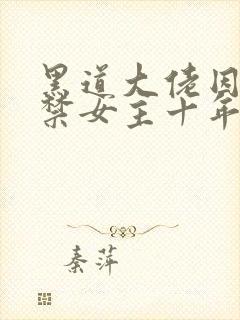 黑道大佬囚
禁女主十年
秦萍